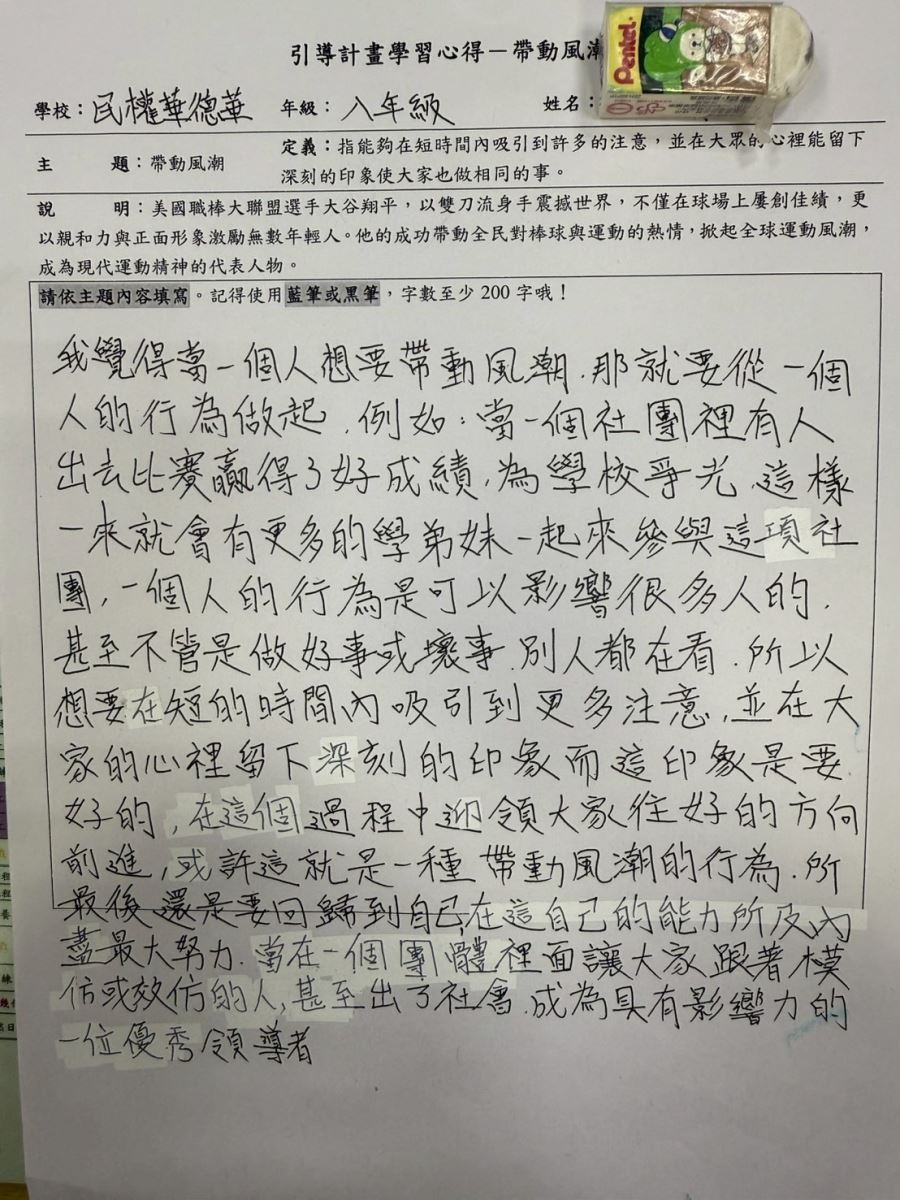 引導計畫學習心得－帶動風潮
Pentel
學校：民權華德華 年級：八年級 姓名：
主題：帶動風潮 定義：指能夠在短時間內吸引到許多的注意，並在大眾的心裡能留下
深刻的印象使大家也做相同的事。
說明：美國職棒大聯盟選手大谷翔平，以雙刀流身手震撼世界，不僅在球場上屢創佳績，更
以親和力與正面形象激勵無數年輕人。他的成功帶動全民對棒球與運動的熱情，掀起全球運動風潮，
成為現代運動精神的代表人物。
請依主題內容填寫。記得使用藍筆或黑筆，字數至少 200 字哦！
我覺得當一個人想要帶動風潮，那就要從一個
人的行為做起，例如：當一個社團裡有人
出去比賽贏得了好成績，為學校爭光，這樣
一來就會有更多的學弟妹一起來參與這項社
團，一個人的行為是可以影響很多人的，
甚至不管是做好事或壞事，別人都在看，所以
想要在短的時間內吸引到更多注意，並在大
家的心裡留下深刻的印象而這印象是要
好的，在這個過程中迎領大家往好的方向
前進，或許這就是一種帶動風潮的行為，所
最後還是要回歸到自己，在這自己的能力所及內
盡最大努力，當在一個團體裡面讓大家跟著模
仿或效仿的人，甚至出了社會，成為具有影響力的
一位優秀領導者